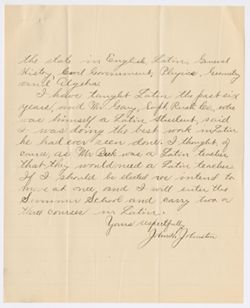 the state in English, Latin, General
History, Civil Government, Physics, Geometry
and Algebra.
I have taught Latin the past six
years, and Mr. Gary, Supt. Rusk Co., who
was himself a Latin student, said
I was doing the best work in Latin
he had ever seen done. I thought, of
course, as Mr. was a Latin teacher
that they would need a Latin teacher.
If I should be elected we intend to
move at once, and I will enter the
Summer School and carry two or
three courses in Latin.
Yours respectfully,
Johnston